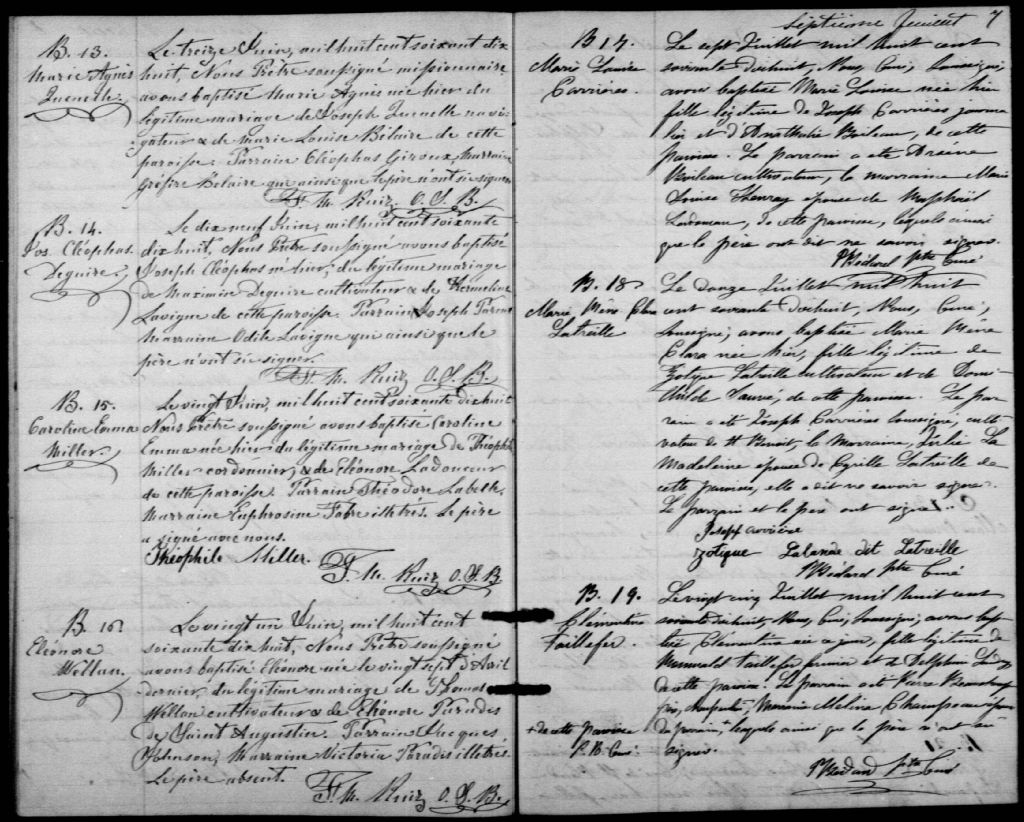 B. 13.
Marie Agnès
Quenelle.
Le treize Juin, mil huit cent soixante dix
huit, Nous Prêtre soussigné missionnaire
avons baptisé Marie Agnès née hier du
légitime mariage de Joseph Quenelle navi-
gateur & de Marie Louise Bélaire de cette
paroisse. Parrain Cléophas Giroux, Marraine
Bélaire qui ainsi que le père n'ont su signer.
F. M. Ruiz, O. S. B.
B. 14.
Jos. Cléophas
Deguire.
Le dix neuf Juin, mil huit cent soixante
dix huit, Nous Prêtre soussigné avons baptisé
Joseph Cléophas né hier, du légitime mariage
de Maxime Deguire cultivateur & de Hermeline
Lavigne de cette paroisse. Parrain Joseph
Marraine Odile Lavigne qui ainsi que le
père n'ont su signer.
F. M. Ruiz, O. S. B.
B. 15.
Caroline Emma
Miller.
Le vingt Juin, mil huit cent soixante dix huit
Nous Prêtre soussigné avons baptisé Caroline
Emma née hier du légitime mariage de Théophile
Miller cordonnier, & de Eléonore Ladouceur
de cette paroisse. Parrain Théodore Labelle,
Marraine Euphrosine Fabre illétrés. Le père
a signé avec nous.
Théophile Miller.
F. M. Ruiz, O. S. B.
B. 16
Eléonore
Wellan.
Le vingt un Juin, mil huit cent
soixante dix huit, Nous Prêtre soussigné
avons baptisé Eléonore née le vingt sept d'Avril
dernier, du légitime mariage de Thomas
Wellan cultivateur & de Eléonore Paradis
de Saint Augustin. Parrain Jacques
Johnson, Marraine Victoria Paradis illétrés.
Le père absent.
F. M. Ruiz, O. S. B.
Septième feuillet 7
B 17.
Marie Louise
Carrières.
Le sept Juillet mil huit cent
soixante dixhuit, Nous, Curé, soussigné,
avons baptisé Marie Louise née hier
fille légitime de Joseph Carrières journa
lier et d'Boileau, de cette
paroisse. Le parrain a été Arsène
Boileau cultivateur, la marraine Marie
Louise épouse de
Ladouceur, de cette paroisse, lesquels ainsi
que le père ont dit ne savoir signer.
Bédard ptre Curé
B. 18
Marie Mina Clara
Latreille
Le douze Juillet mil huit
cent soixante dixhuit, Nous, Curé,
soussigné, avons baptisé Marie Mina
Clara née hier, fille légitime de
Zotique Latreille cultivateur et de Domi-
thilde Sauvé, de cette paroisse. Le par
rain a été Joseph Carrières soussigné, culti-
vateur de St Benoit, la Marraine, La
Madeleine épouse de Cyrille Latreille de
cette paroisse, elle a dit ne savoir signer.
Le parrain et le père ont signé.
Joseph
Zotique Lalande dit Latreille
Bédard ptre Curé
B. 19.
Clémentine
Taillefer.
Le vingt cinq Juillet mil huit cent
soixante dixhuit, Nous, Curé, soussigné, avons bap-
tisé Clémentine née ce jour, fille légitime de
Taillefer fermier et de Delphine
de cette paroisse. Le parrain a été Pierre
Marraine Mélina Champeau
+ lesquels ainsi que le père n'ont su
signer.
+ de cette paroisse
P. B. Curé.
Bédard ptre Curé